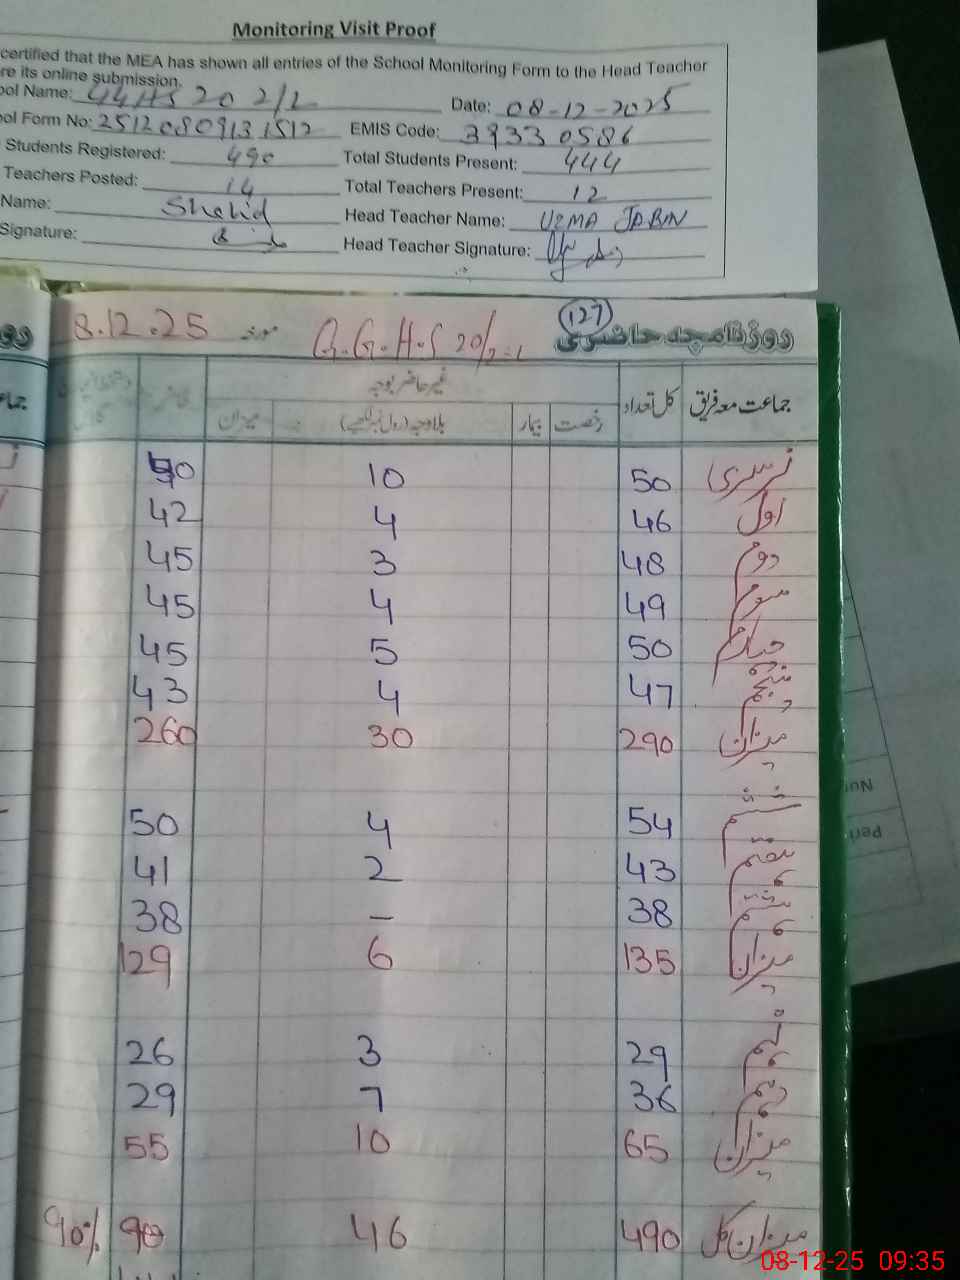 Monitoring Visit Proof
certified that the MEA has shown all entries of the School Monitoring Form to the Head Teacher
re its online submission.
ool Name: GGHS 20 2/L Date: 08-12-2025
ool Form No: 2512080913 1512 EMIS Code: 39330586
Students Registered: 490 Total Students Present: 444
Teachers Posted: 14 Total Teachers Present: 12
Name: Shahid Head Teacher Name: UZMA JABIN
Signature: Head Teacher Signature:
127
8.12.25 مورخہ G.G.H.S 20/2-L روزنامچہ حاضری
جماعت معہ فریق کل تعداد غیر حاضر بوجہ
رخصت بیمار بلاوجہ (رول نمبر لکھیے) میزان حاضر
نرسری 50 10 40
اول 46 4 42
دوم 48 3 45
سوم 49 4 45
چہارم 50 5 45
پنجم 47 4 43
میزان 290 30 260
ششم 54 4 50
ہفتم 43 2 41
ہشتم 38 – 38
میزان 135 6 129
نہم 29 3 26
دہم 36 7 29
میزان 65 10 55
میزان کل 490 46 90 90%
Nu
Peri
08-12-25 09:35